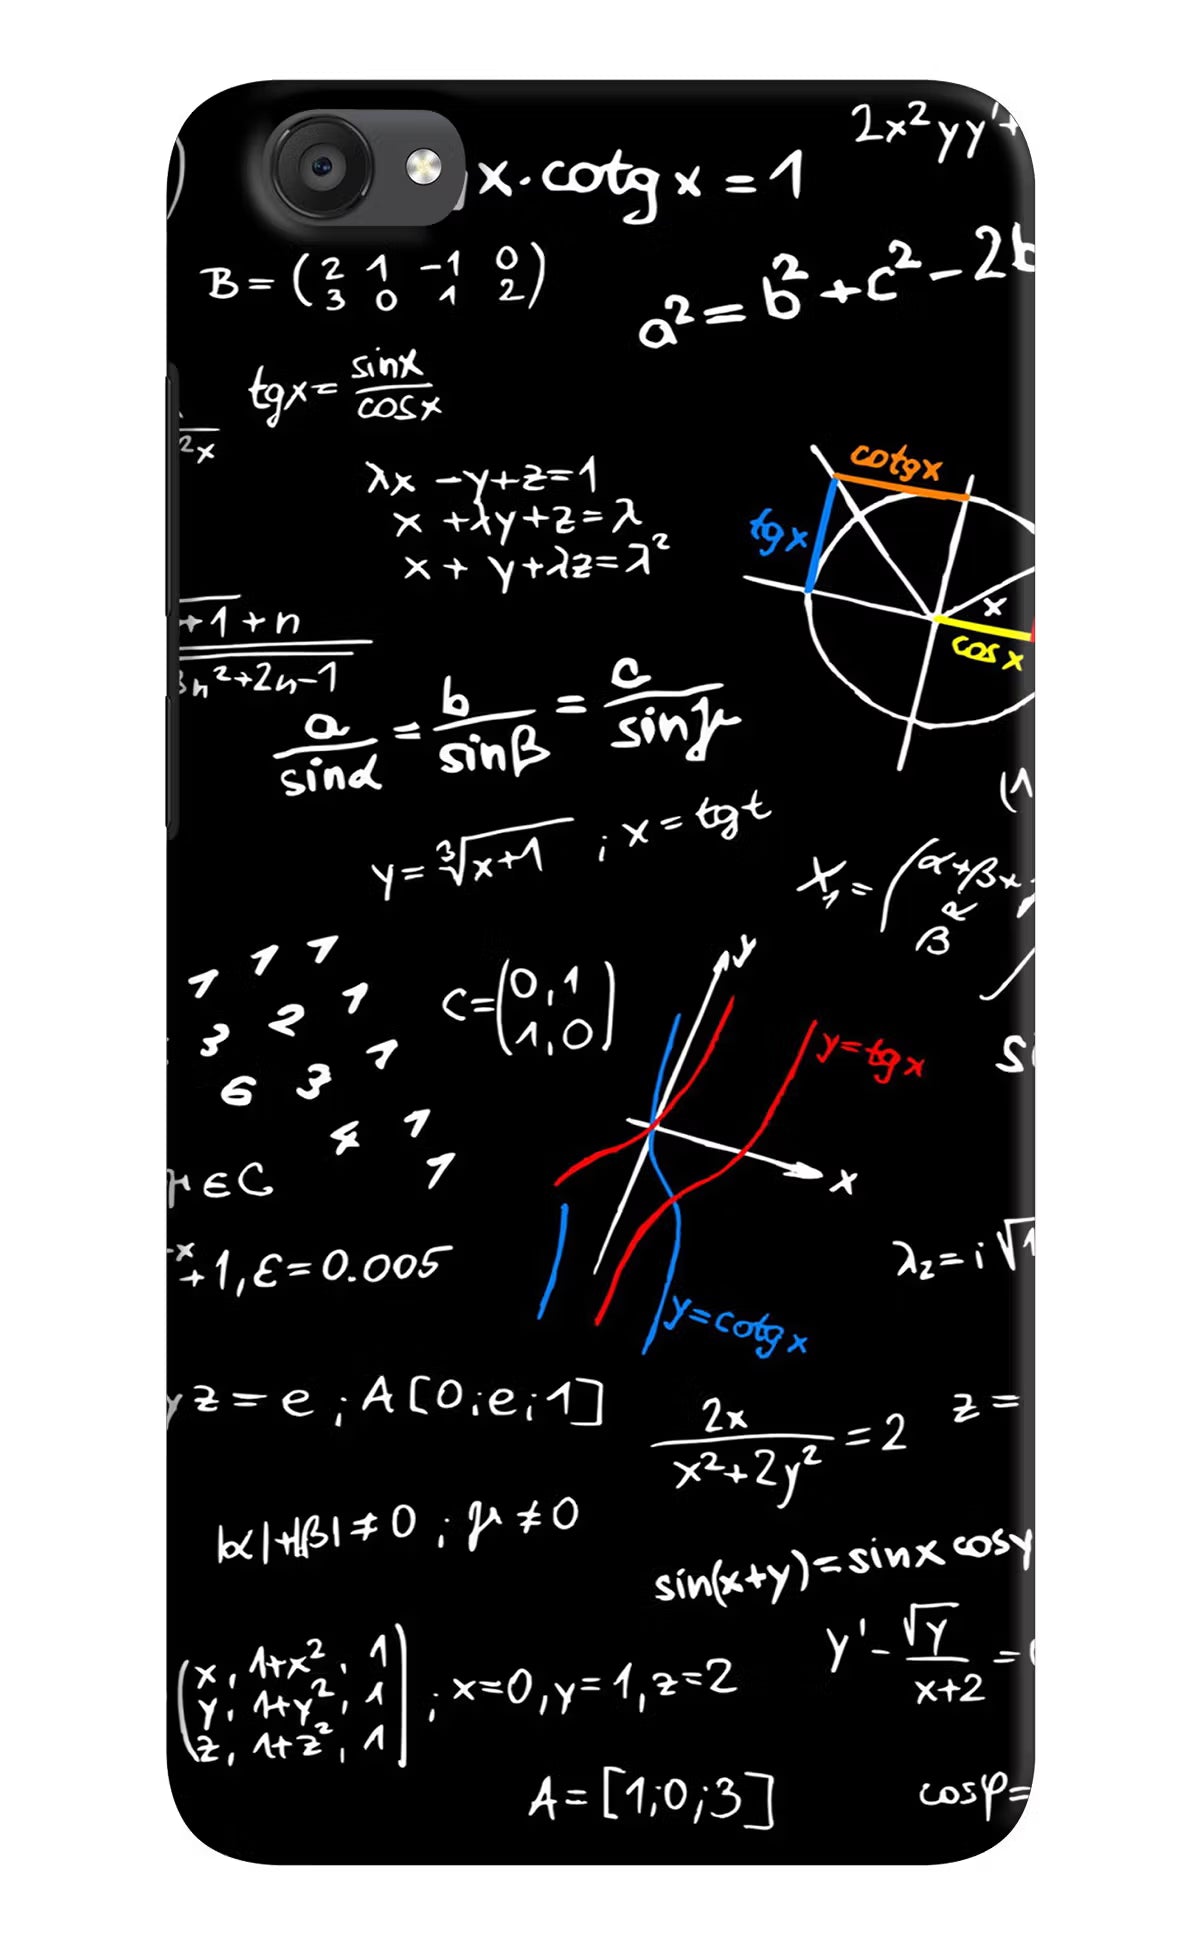 2x²yy'+
x·cotg x = 1
B = (2 1 -1 0
3 0 1 2)
a² = b² + c² - 2b
tgx = sinx
cosx
2x
λx - y + z = 1
x + λy + z = λ
x + y + λz = λ²
cotgx
tgx
x
cosx
+1 + n
3n²+2n-1
a/sinα = b/sinβ = c/sinγ
y = ∛x+1 ; x = tgt
X₁ = (α+βx
β R
1 1 1
3 2 1
6 3 1
4 1
1
C = (0,1
1,0)
y
y=tgx
x
y=cotgx
μ ∈ C
-x
+1, ε = 0.005
λ₂ = i√1
yz = e ; A[0;e;1]
2x
x²+2y² = 2
z =
|α|+|β| ≠ 0 ; μ ≠ 0
sin(x+y) = sinx cosy
y' - √y
x+2 =
(x, 1+x², 1
y, 1+y², 1
z, 1+z², 1) ; x=0, y=1, z=2
A = [1;0;3]
cosφ=